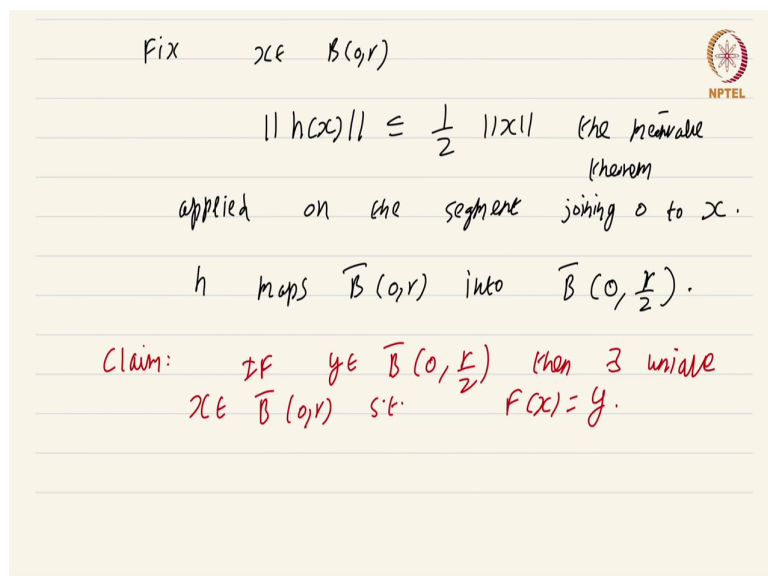 Fix x∈ B(0,r)
NPTEL
||h(x)|| ≤ 1/2 ||x|| the meanvalue
theorem
applied on the segment joining 0 to x.
h maps B̅(0,r) into B̅(0, r/2).
Claim: IF y∈ B̅(0, r/2) then ∃ unique
x∈ B̅(0,r) s.t. F(x)=y.